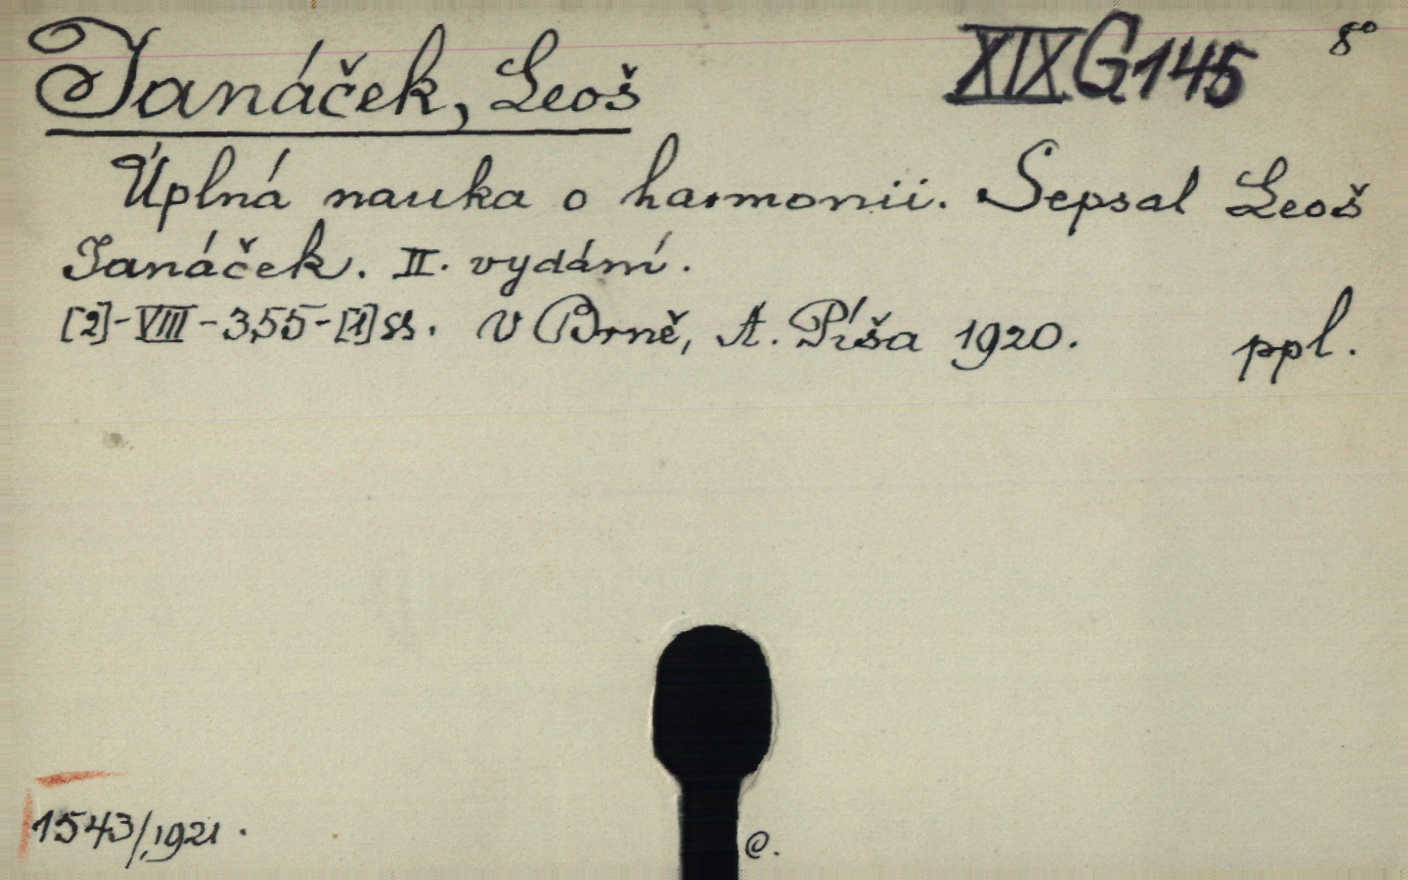 Janáček, Leoš XIX G 145 8°
Úplná nauka o harmonii. Sepsal Leoš
Janáček. II. vydání.
[2]-VIII-355-[1] ss. V Brně, A. Píša 1920. ppl.
1543/1921.
C.